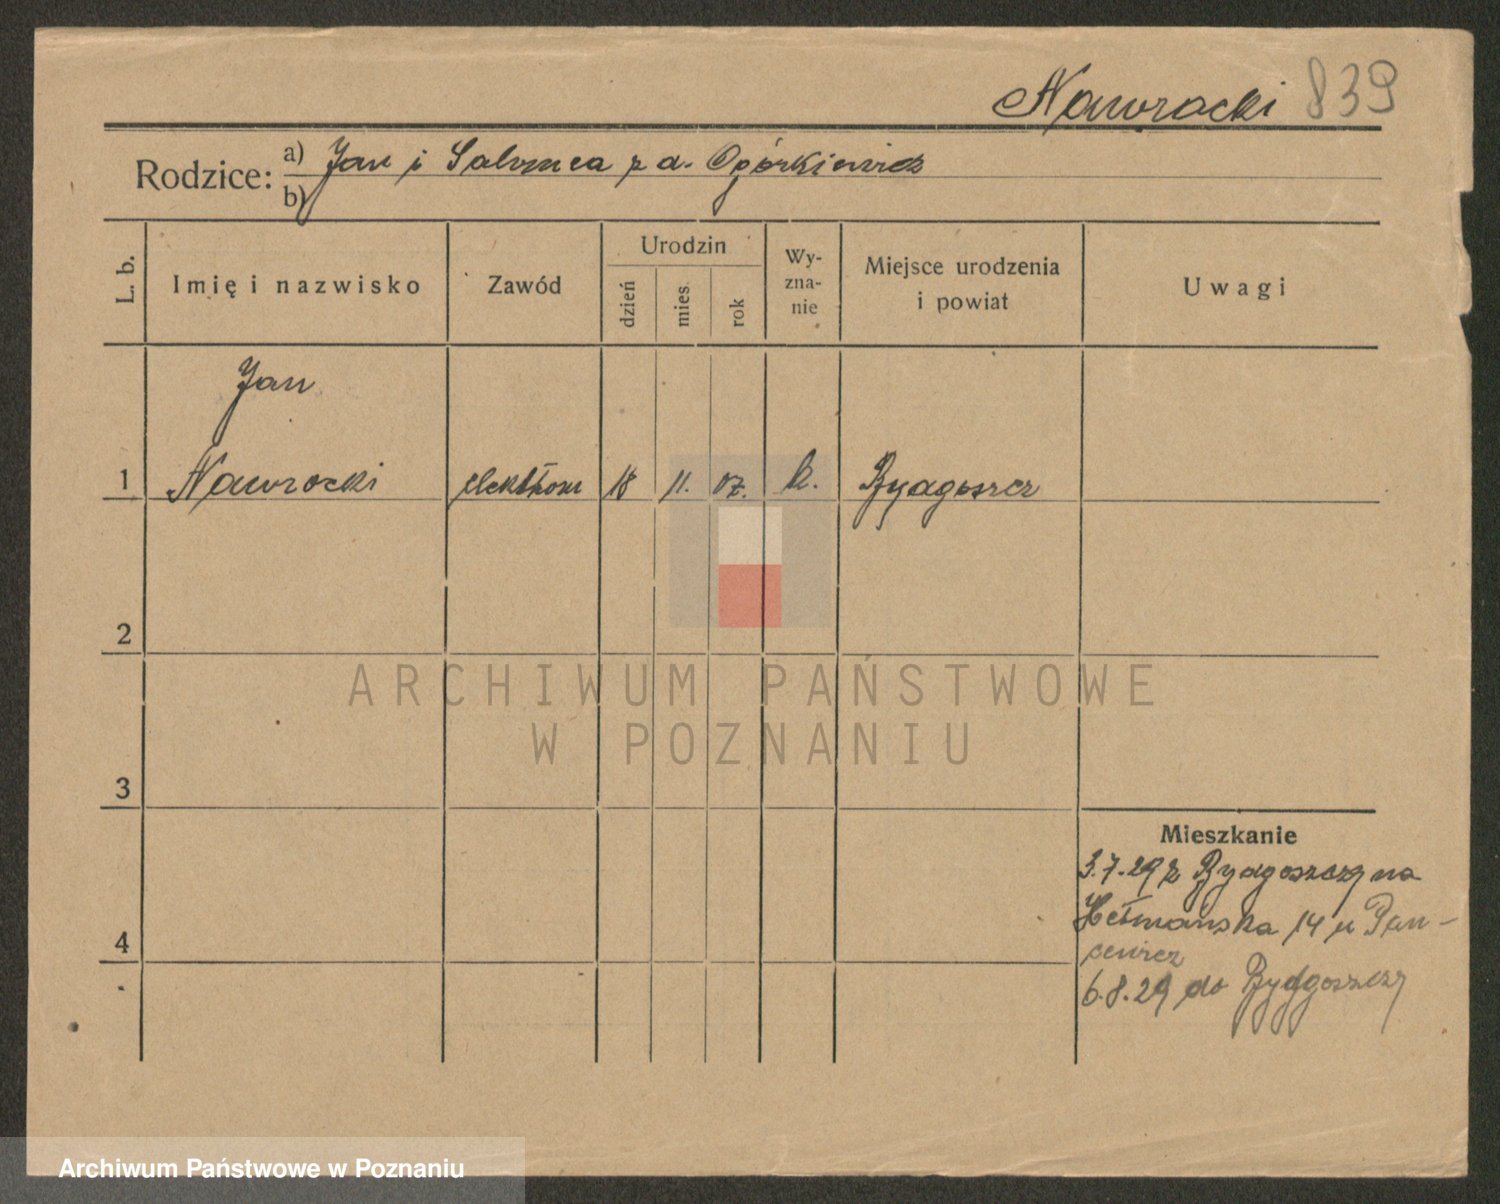 Nawrocki 839
Rodzice: a) Jan i Salomea z d. Ogórkiewicz
b)
L. b.
Imię i nazwisko
Zawód
Urodzin
dzień
mies.
rok
Wy-
zna-
nie
Miejsce urodzenia
i powiat
Uwagi
Jan
1 Nawrocki 18 11. 07. k. Bydgoszcz
2
ARCHIWUM PAŃSTWOWE
W POZNANIU
3
Mieszkanie
3.7.29 z Bydgoszczy na
4 Hetmańska 14 u Pan-
cewicz
6.8.29 do Bydgoszczy
Archiwum Państwowe w Poznaniu